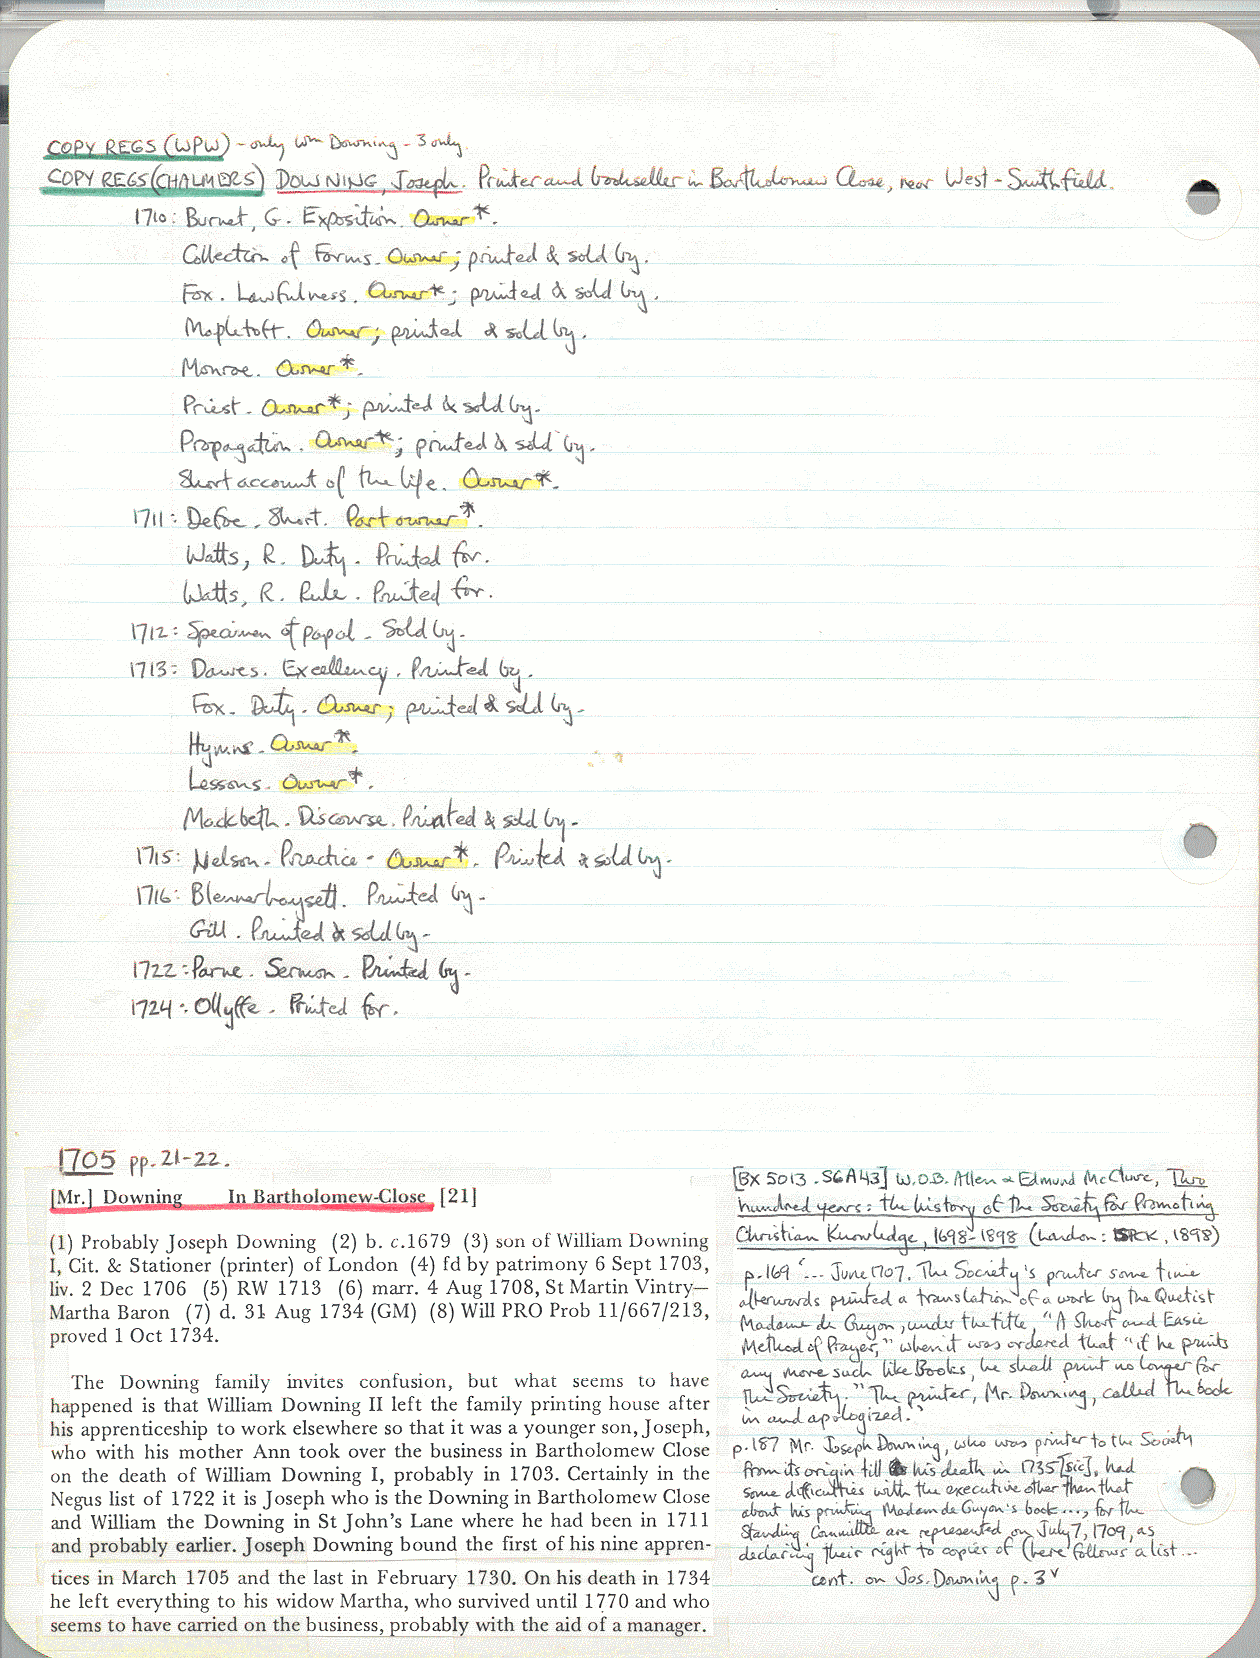 COPY REGS (WPW) - only Wm Downing - 3 only.
COPY REGS (CHALMERS) DOWNING, Joseph. Printer and bookseller in Bartholomew Close, near West-Smithfield.
1710: Burnet, G. Exposition. Owner*.
Collection of Forms. Owner; printed & sold by.
Fox. Lawfulness. Owner*; printed & sold by.
Mapletoft. Owner; printed & sold by.
Monroe. Owner*.
Priest. Owner*; printed & sold by.
Propagation. Owner*; printed & sold by.
Short account of the life. Owner*.
1711: Defoe. Short. Part owner*.
Watts, R. Duty. Printed for.
Watts, R. Rule. Printed for.
1712: Specimen of papal. Sold by.
1713: Dawes. Excellency. Printed by.
Fox. Duty. Owner; printed & sold by.
Hymns. Owner*.
Lessons. Owner*.
Mackbeth. Discourse. Printed & sold by.
1715: Nelson. Practice. Owner*. Printed & sold by.
1716: Blennerhaysett. Printed by.
Gill. Printed & sold by.
1722: Parne. Sermon. Printed by.
1724: Ollyffe. Printed for.
1705 pp. 21-22.
[Mr.] Downing In Bartholomew-Close [21]
(1) Probably Joseph Downing (2) b. c.1679 (3) son of William Downing
I, Cit. & Stationer (printer) of London (4) fd by patrimony 6 Sept 1703,
liv. 2 Dec 1706 (5) RW 1713 (6) marr. 4 Aug 1708, St Martin Vintry—
Martha Baron (7) d. 31 Aug 1734 (GM) (8) Will PRO Prob 11/667/213,
proved 1 Oct 1734.
The Downing family invites confusion, but what seems to have
happened is that William Downing II left the family printing house after
his apprenticeship to work elsewhere so that it was a younger son, Joseph,
who with his mother Ann took over the business in Bartholomew Close
on the death of William Downing I, probably in 1703. Certainly in the
Negus list of 1722 it is Joseph who is the Downing in Bartholomew Close
and William the Downing in St John's Lane where he had been in 1711
and probably earlier. Joseph Downing bound the first of his nine appren-
tices in March 1705 and the last in February 1730. On his death in 1734
he left everything to his widow Martha, who survived until 1770 and who
seems to have carried on the business, probably with the aid of a manager.
[BX 5013 .S6A43] W.O.B. Allen & Edmund McClure, Two
hundred years: the history of the Society for Promoting
Christian Knowledge, 1698-1898 (London: SPCK, 1898)
p.169 '... June 1707. The Society's printer some time
afterwards printed a translation of a work by the Quetist
Madame de Guyon, under the title, "A Short and Easie
Method of Prayer," when it was ordered that "if he prints
any more such like Books, he shall print no longer for
the Society." The printer, Mr. Downing, called the book
in and apologized.'
p.187 Mr. Joseph Downing, who was printer to the Society
from its origin till his death in 1735 [sic], had
some difficulties with the executive other than that
about his printing Madam de Guyon's book ..., for the
Standing Committee are represented on July 7, 1709, as
declaring their right to copies of (here follows a list ...
cont. on Jos. Downing p. 3v